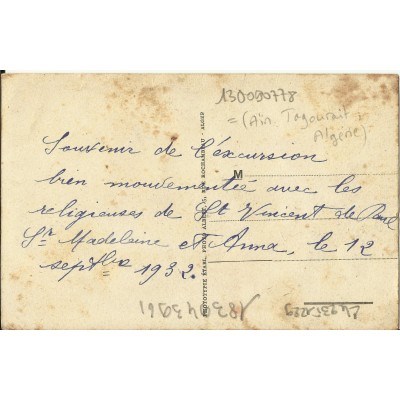 130090778
= (Aïn Tagourait
Algérie)
Souvenir de l'excursion
bien mouvementée avec les
religieuses de St Vincent de Paul
Sr Madeleine et Anna, le 12
septbre 1932.
M
PHOTOTYPIE ÉTABL. PHOTO ALBERT, ROCHAMBEAU - ALGER
18304396